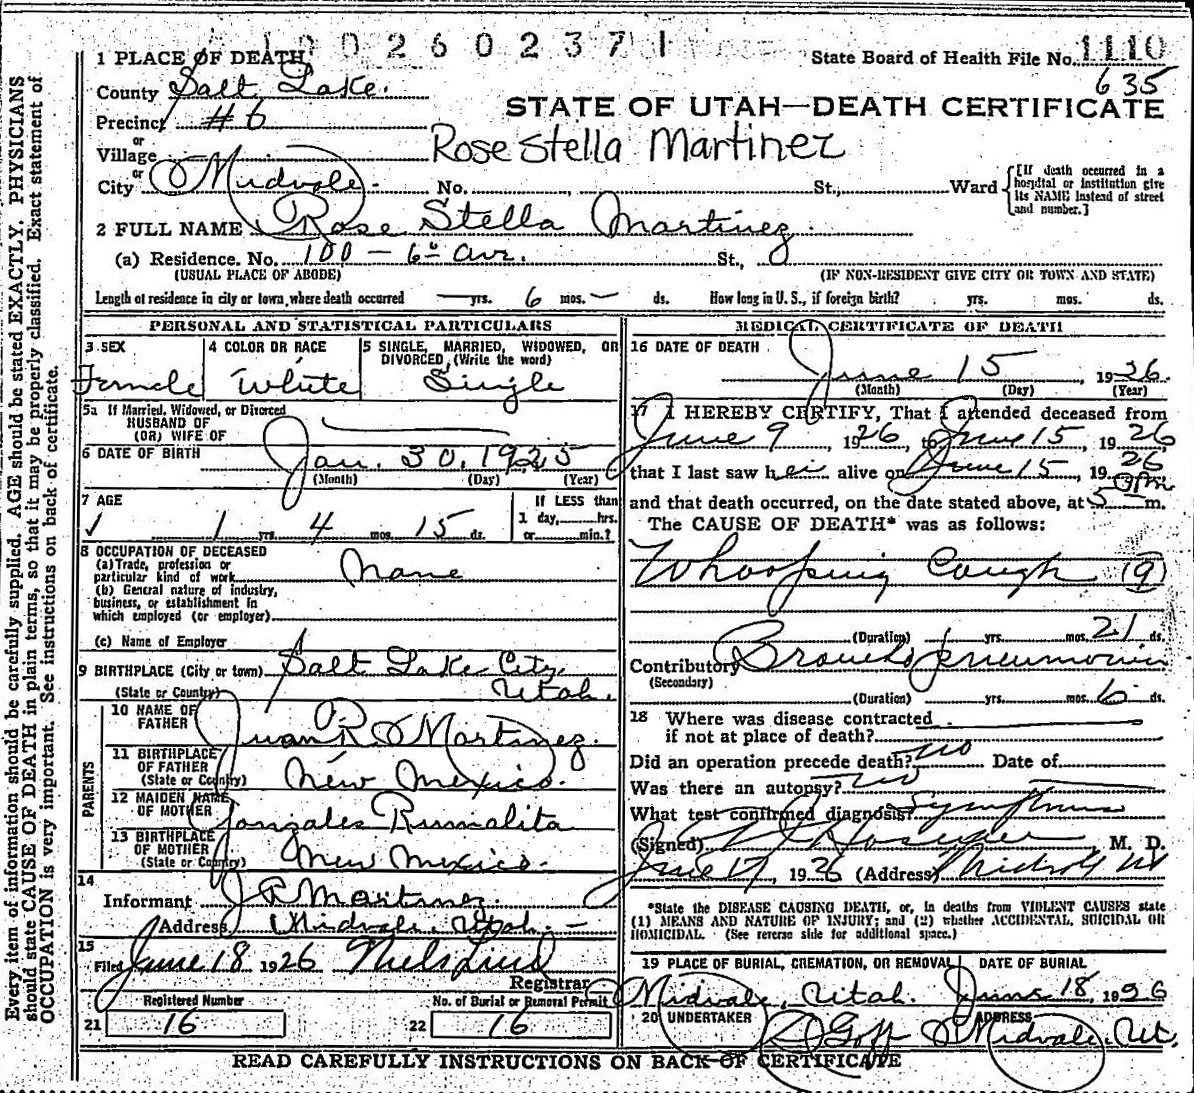 1 0 0 2 6 0 2 3 7 1
1 PLACE OF DEATH
State Board of Health File No. 1110
635
County Salt Lake.
STATE OF UTAH—DEATH CERTIFICATE
Precinct #6
or
Village
Rose Stella Martinez
or
City Midvale. No. St., Ward
[If death occurred in a hospital or institution give its NAME instead of street and number.]
2 FULL NAME Rose Stella Martinez.
(a) Residence. No. 100 - 6th Ave. St.,
(USUAL PLACE OF ABODE) (IF NON-RESIDENT GIVE CITY OR TOWN AND STATE)
Length of residence in city or town, where death occurred — yrs. 6 mos. — ds. How long in U. S., if foreign birth? yrs. mos. ds.
PERSONAL AND STATISTICAL PARTICULARS
3 SEX
Female
4 COLOR OR RACE
White
5 SINGLE, MARRIED, WIDOWED, OR
DIVORCED, (Write the word)
Single
5a If Married, Widowed, or Divorced
HUSBAND OF
(OR) WIFE OF
6 DATE OF BIRTH Jan. 30, 1925
(Month) (Day) (Year)
7 AGE
1 yrs. 4 mos. 15 ds.
If LESS than
1 day, hrs.
or min.?
8 OCCUPATION OF DECEASED
(a) Trade, profession or
particular kind of work None
(b) General nature of industry,
business, or establishment in
which employed (or employer)
(c) Name of Employer
9 BIRTHPLACE (City or town) Salt Lake City,
(State or Country) Utah.
PARENTS
10 NAME OF
FATHER Juan R. Martinez.
11 BIRTHPLACE
OF FATHER
(State or Country) New Mexico.
12 MAIDEN NAME
OF MOTHER Gonzales Rumalita
13 BIRTHPLACE
OF MOTHER
(State or Country) New Mexico.
14
Informant J R Martinez.
Address Midvale, Utah. —
15
Filed June 18 1926 Niels Lind
Registrar
Registered Number
21 16
No. of Burial or Removal Permit
22 16
MEDICAL CERTIFICATE OF DEATH
16 DATE OF DEATH
June 15, 1926.
(Month) (Day) (Year)
17 I HEREBY CERTIFY, That I attended deceased from
June 9, 1926, to June 15, 1926
that I last saw her alive on June 15, 1926
and that death occurred, on the date stated above, at 5 Pm m.
The CAUSE OF DEATH* was as follows:
Whooping Cough (9)
(Duration) yrs. mos. 21 ds.
Contributory Broncho pneumonia
(Secondary)
(Duration) yrs. mos. 6 ds.
18 Where was disease contracted
if not at place of death?
Did an operation precede death? no Date of
Was there an autopsy? no
What test confirmed diagnosis? Symptoms
(Signed) M. D.
June 17, 1926 (Address) Midvale Ut
*State the DISEASE CAUSING DEATH, or, in deaths from VIOLENT CAUSES state
(1) MEANS AND NATURE OF INJURY; and (2) whether ACCIDENTAL, SUICIDAL OR
HOMICIDAL. (See reverse side for additional space.)
19 PLACE OF BURIAL, CREMATION, OR REMOVAL DATE OF BURIAL
Midvale, Utah. June 18, 1926
20 UNDERTAKER ADDRESS
Goff Midvale, Ut.
READ CAREFULLY INSTRUCTIONS ON BACK OF CERTIFICATE
Every item of information should be carefully supplied. AGE should be stated EXACTLY. PHYSICIANS
should state CAUSE OF DEATH in plain terms, so that it may be properly classified. Exact statement of
OCCUPATION is very important. See instructions on back of certificate.